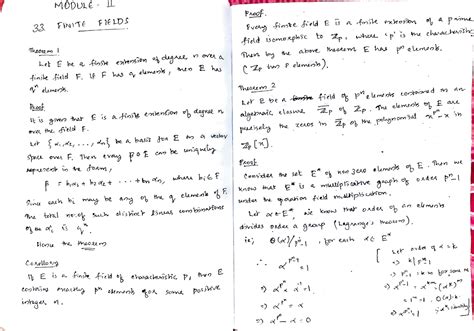 MODULE - II
33 FINITE FIELDS
Theorem 1
Let E be a finite extension of degree n over a
finite field F. If F has q elements, then E has
qⁿ elements.
Proof
It is given that E is a finite extension of degree n
over the field F.
Let {α₁, α₂, ..., αn} be a basis for E as a vector
space over F. Then every β ∈ E can be uniquely
represent in the form,
β = b₁α₁ + b₂α₂ + ... + bnαn, where bi ∈ F
Since each bi may be any of the q elements of F,
the total no: of such distinct linear combinations
of the αi is qⁿ.
Hence the theorem
Corollary
If E is a finite field of characteristic p, then E
contains exactly pⁿ elements for some positive
integer n.
Proof.
Every finite field E is a finite extension of a prime
field isomorphic to Zp, where 'p' is the characteristic
Then by the above theorem E has pⁿ elements.
(Zp has p elements).
Theorem 2
Let E be a field of pⁿ elements contained in an
algebraic closure Z̅p of Zp. The elements of E are
precisely the zeros in Z̅p of the polynomial x^pⁿ - x in
Zp[x].
Proof
Consider the set E* of non zero elements of E. Then we
know that E* is a multiplicative group of order pⁿ-1
under the field multiplication.
Let α ∈ E*, we know that order of an element
divides order of a group (Lagrange's theorem).
ie; O(α)/pⁿ-1, for each α ∈ E*
∴ α^pⁿ-1 = 1
⇒ α^pⁿ α⁻¹ = 1
⇒ α^pⁿ = α
⇒ α^pⁿ - α = 0
Let order of α = k
⇒ k/pⁿ-1
⇒ pⁿ-1 = km for some m
⇒ α^pⁿ-1 = α^km = (α^k)^m
⇒ α^pⁿ-1 = 1